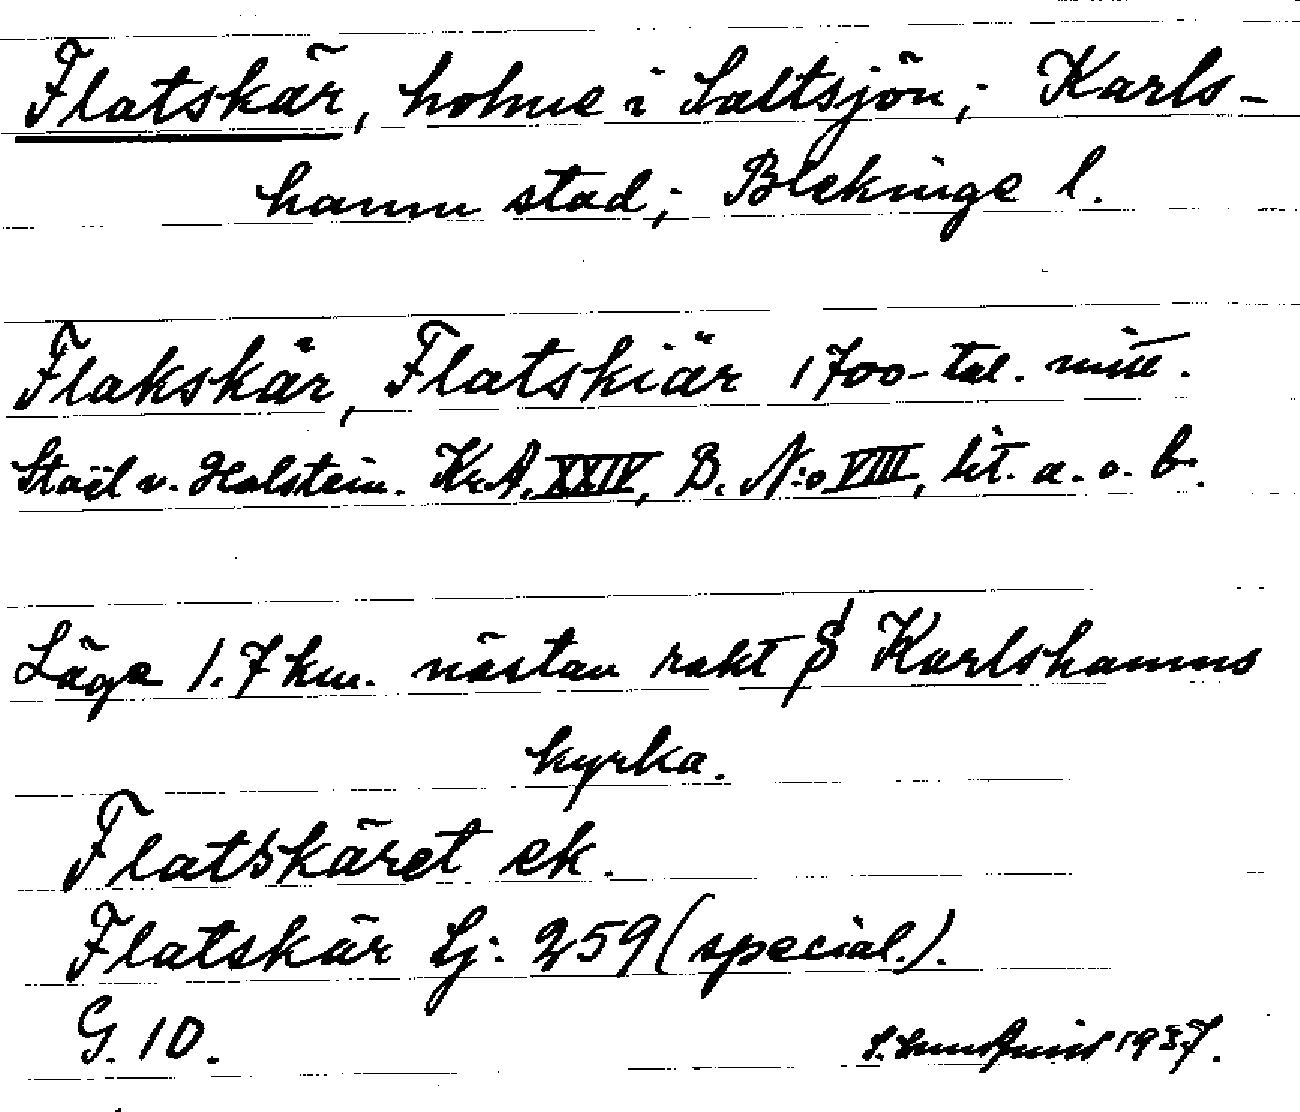 Flatskär, holme i Saltsjön; Karls-
hamn stad; Blekinge l.
Flakskär, Flatskiär 1700-tal. mitt.
Staël v. Holstein. Kr.A. XXIV, B. N:o VIII, lit. a. o. b.
Läge 1.7 km. nästan rakt S Karlshamns
kyrka.
Flatskäret ek.
Flatskär Sj: 259 (special.).
G. 10.
1937.